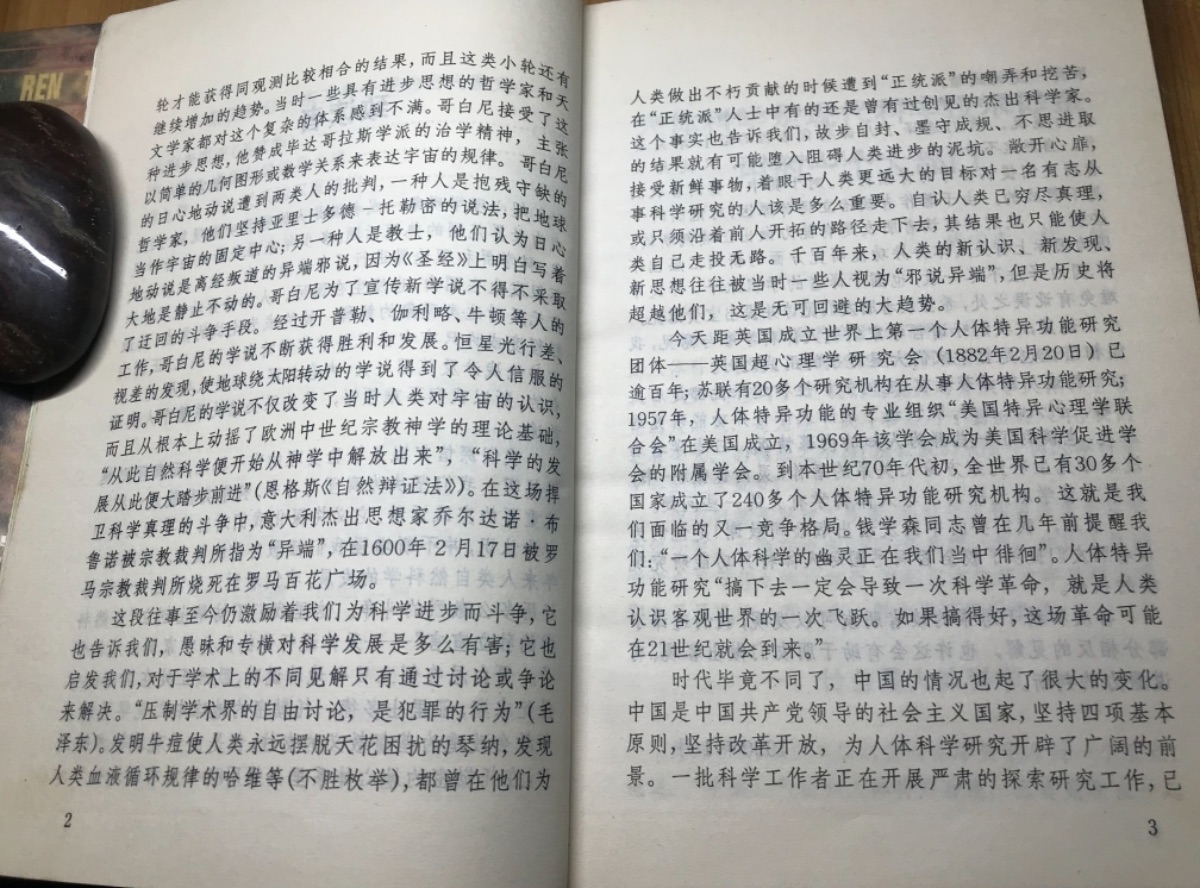 REN
轮才能获得同观测比较相合的结果，而且这类小轮还有
继续增加的趋势。当时一些具有进步思想的哲学家和天
文学家都对这个复杂的体系感到不满。哥白尼接受了这
种进步思想，他赞成毕达哥拉斯学派的治学精神，主张
以简单的几何图形或数学关系来表达宇宙的规律。哥白尼
的日心地动说遭到两类人的批判，一种人是抱残守缺的
哲学家，他们坚持亚里士多德－托勒密的说法，把地球
当作宇宙的固定中心；另一种人是教士，他们认为日心
地动说是离经叛道的异端邪说，因为《圣经》上明白写着
大地是静止不动的。哥白尼为了宣传新学说不得不采取
了迂回的斗争手段。经过开普勒、伽利略、牛顿等人的
工作，哥白尼的学说不断获得胜利和发展。恒星光行差、
视差的发现，使地球绕太阳转动的学说得到了令人信服的
证明。哥白尼的学说不仅改变了当时人类对宇宙的认识，
而且从根本上动摇了欧洲中世纪宗教神学的理论基础，
“从此自然科学便开始从神学中解放出来”，“科学的发
展从此便大踏步前进”(恩格斯《自然辩证法》)。在这场捍
卫科学真理的斗争中，意大利杰出思想家乔尔达诺·布
鲁诺被宗教裁判所指为“异端”，在1600年2月17日被罗
马宗教裁判所烧死在罗马百花广场。
这段往事至今仍激励着我们为科学进步而斗争，它
也告诉我们，愚昧和专横对科学发展是多么有害；它也
启发我们，对于学术上的不同见解只有通过讨论或争论
来解决。“压制学术界的自由讨论，是犯罪的行为”(毛
泽东)。发明牛痘使人类永远摆脱天花困扰的琴纳，发现
人类血液循环规律的哈维等(不胜枚举)，都曾在他们为
2
人类做出不朽贡献的时候遭到“正统派”的嘲弄和挖苦，
在“正统派”人士中有的还是曾有过创见的杰出科学家。
这个事实也告诉我们，故步自封、墨守成规、不思进取
的结果就有可能堕入阻碍人类进步的泥坑。敞开心扉，
接受新鲜事物，着眼于人类更远大的目标对一名有志从
事科学研究的人该是多么重要。自认人类已穷尽真理，
或只须沿着前人开拓的路径走下去，其结果也只能使人
类自己走投无路。千百年来，人类的新认识、新发现、
新思想往往被当时一些人视为“邪说异端”，但是历史将
超越他们，这是无可回避的大趋势。
今天距英国成立世界上第一个人体特异功能研究
团体——英国超心理学研究会（1882年2月20日）已
逾百年；苏联有20多个研究机构在从事人体特异功能研究；
1957年，人体特异功能的专业组织“美国特异心理学联
合会”在美国成立，1969年该学会成为美国科学促进学
会的附属学会。到本世纪70年代初，全世界已有30多个
国家成立了240多个人体特异功能研究机构。这就是我
们面临的又一竞争格局。钱学森同志曾在几年前提醒我
们：“一个人体科学的幽灵正在我们当中徘徊”。人体特异
功能研究“搞下去一定会导致一次科学革命，就是人类
认识客观世界的一次飞跃。如果搞得好，这场革命可能
在21世纪就会到来。”
时代毕竟不同了，中国的情况也起了很大的变化。
中国是中国共产党领导的社会主义国家，坚持四项基本
原则，坚持改革开放，为人体科学研究开辟了广阔的前
景。一批科学工作者正在开展严肃的探索研究工作，已
3